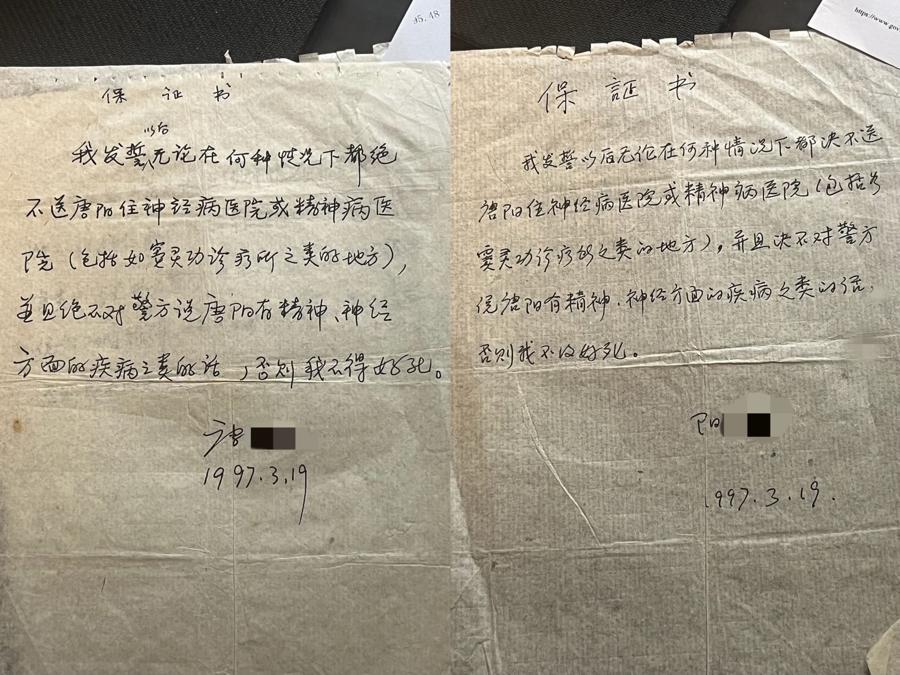 35.48
保 证 书
以后
我发誓无论在何种情况下都绝
不送唐阳住神经病医院或精神病医
院（包括如窦灵功诊疗所之类的地方），
并且绝不对警方说唐阳有精神、神经
方面的疾病之类的话，否则我不得好死。
唐
1997.3.19
https://www.gov
保 証 书
我发誓以后无论在何种情况下都决不送
唐阳住神经病医院或精神病医院（包括
窦灵功诊疗所之类的地方），并且决不对警方
说唐阳有精神、神经方面的疾病之类的话，
否则我不得好死。
阳
1997.3.19.